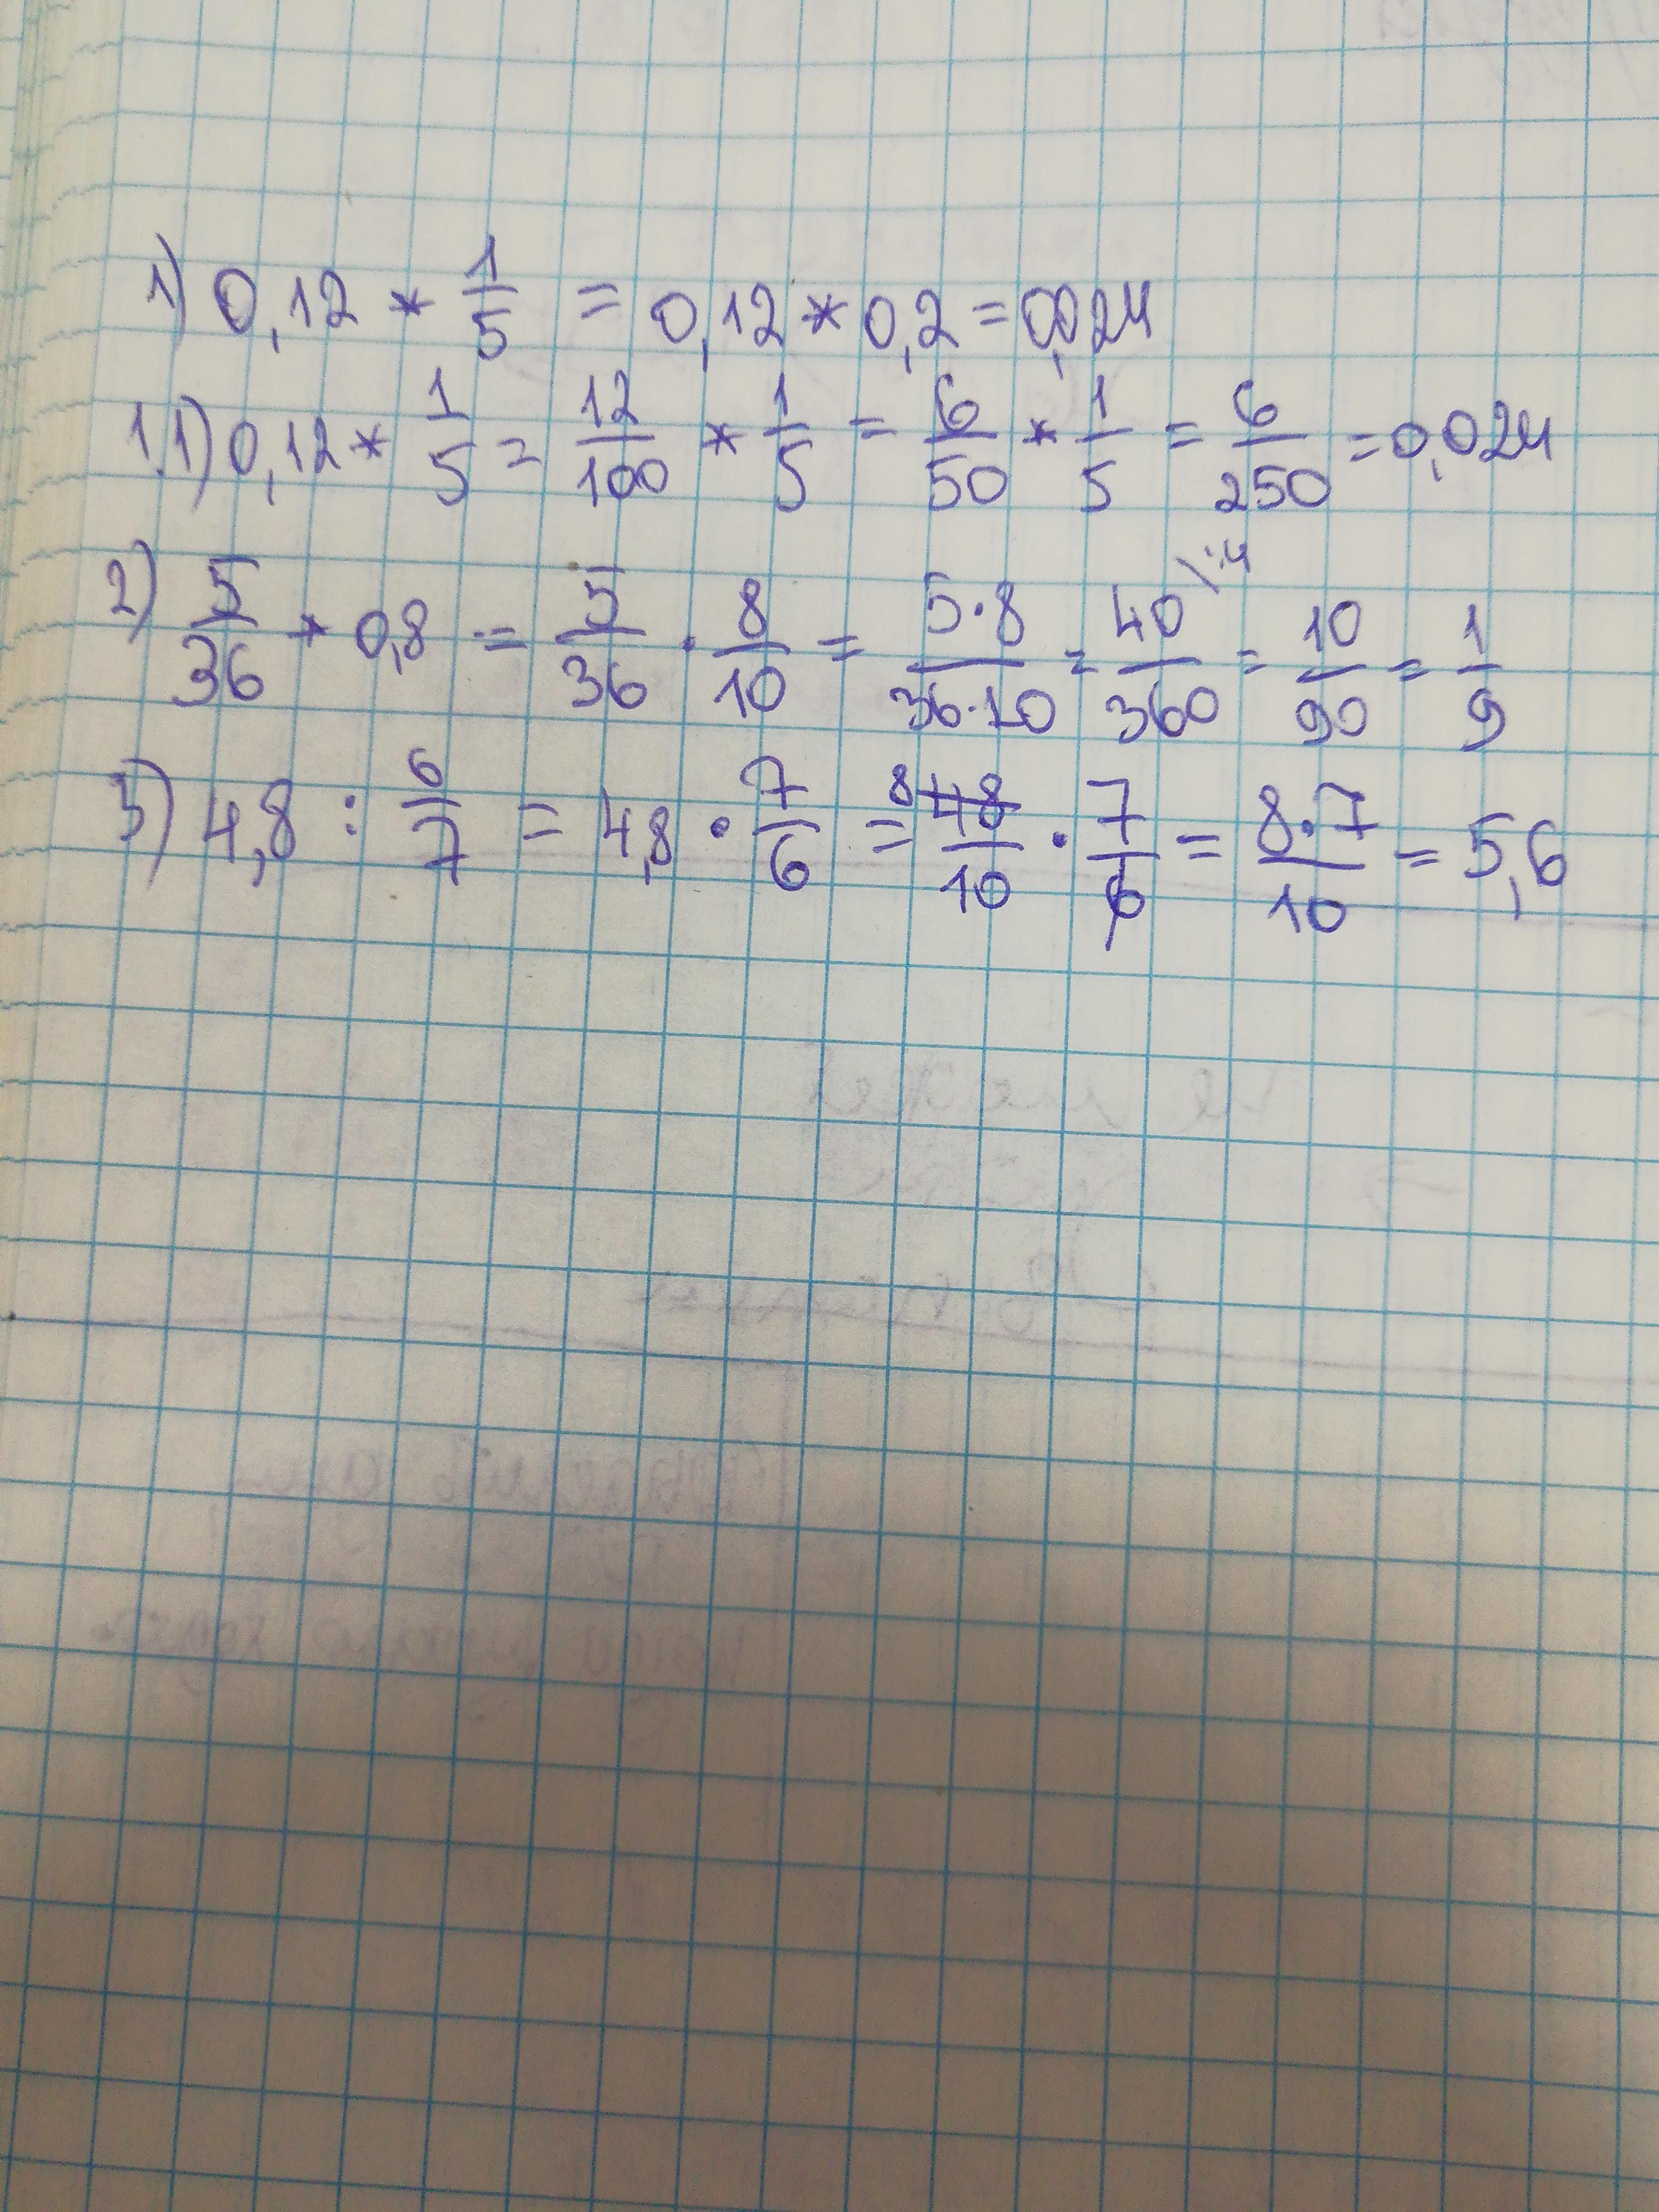 1) 0,12 * 1/5 = 0,12 * 0,2 = 0,024
1.1) 0,12 * 1/5 = 12/100 * 1/5 = 6/50 * 1/5 = 6/250 = 0,024
2) 5/36 * 0,8 = 5/36 · 8/10 = 5·8/36·10 = 40/360 \:4 = 10/90 = 1/9
3) 4,8 : 6/7 = 4,8 · 7/6 = 8 48/10 · 7/6 = 8·7/10 = 5,6